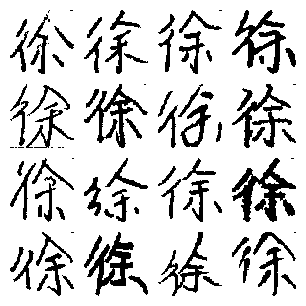 徐徐徐徐
徐徐徐徐
徐徐徐徐
徐徐徐徐